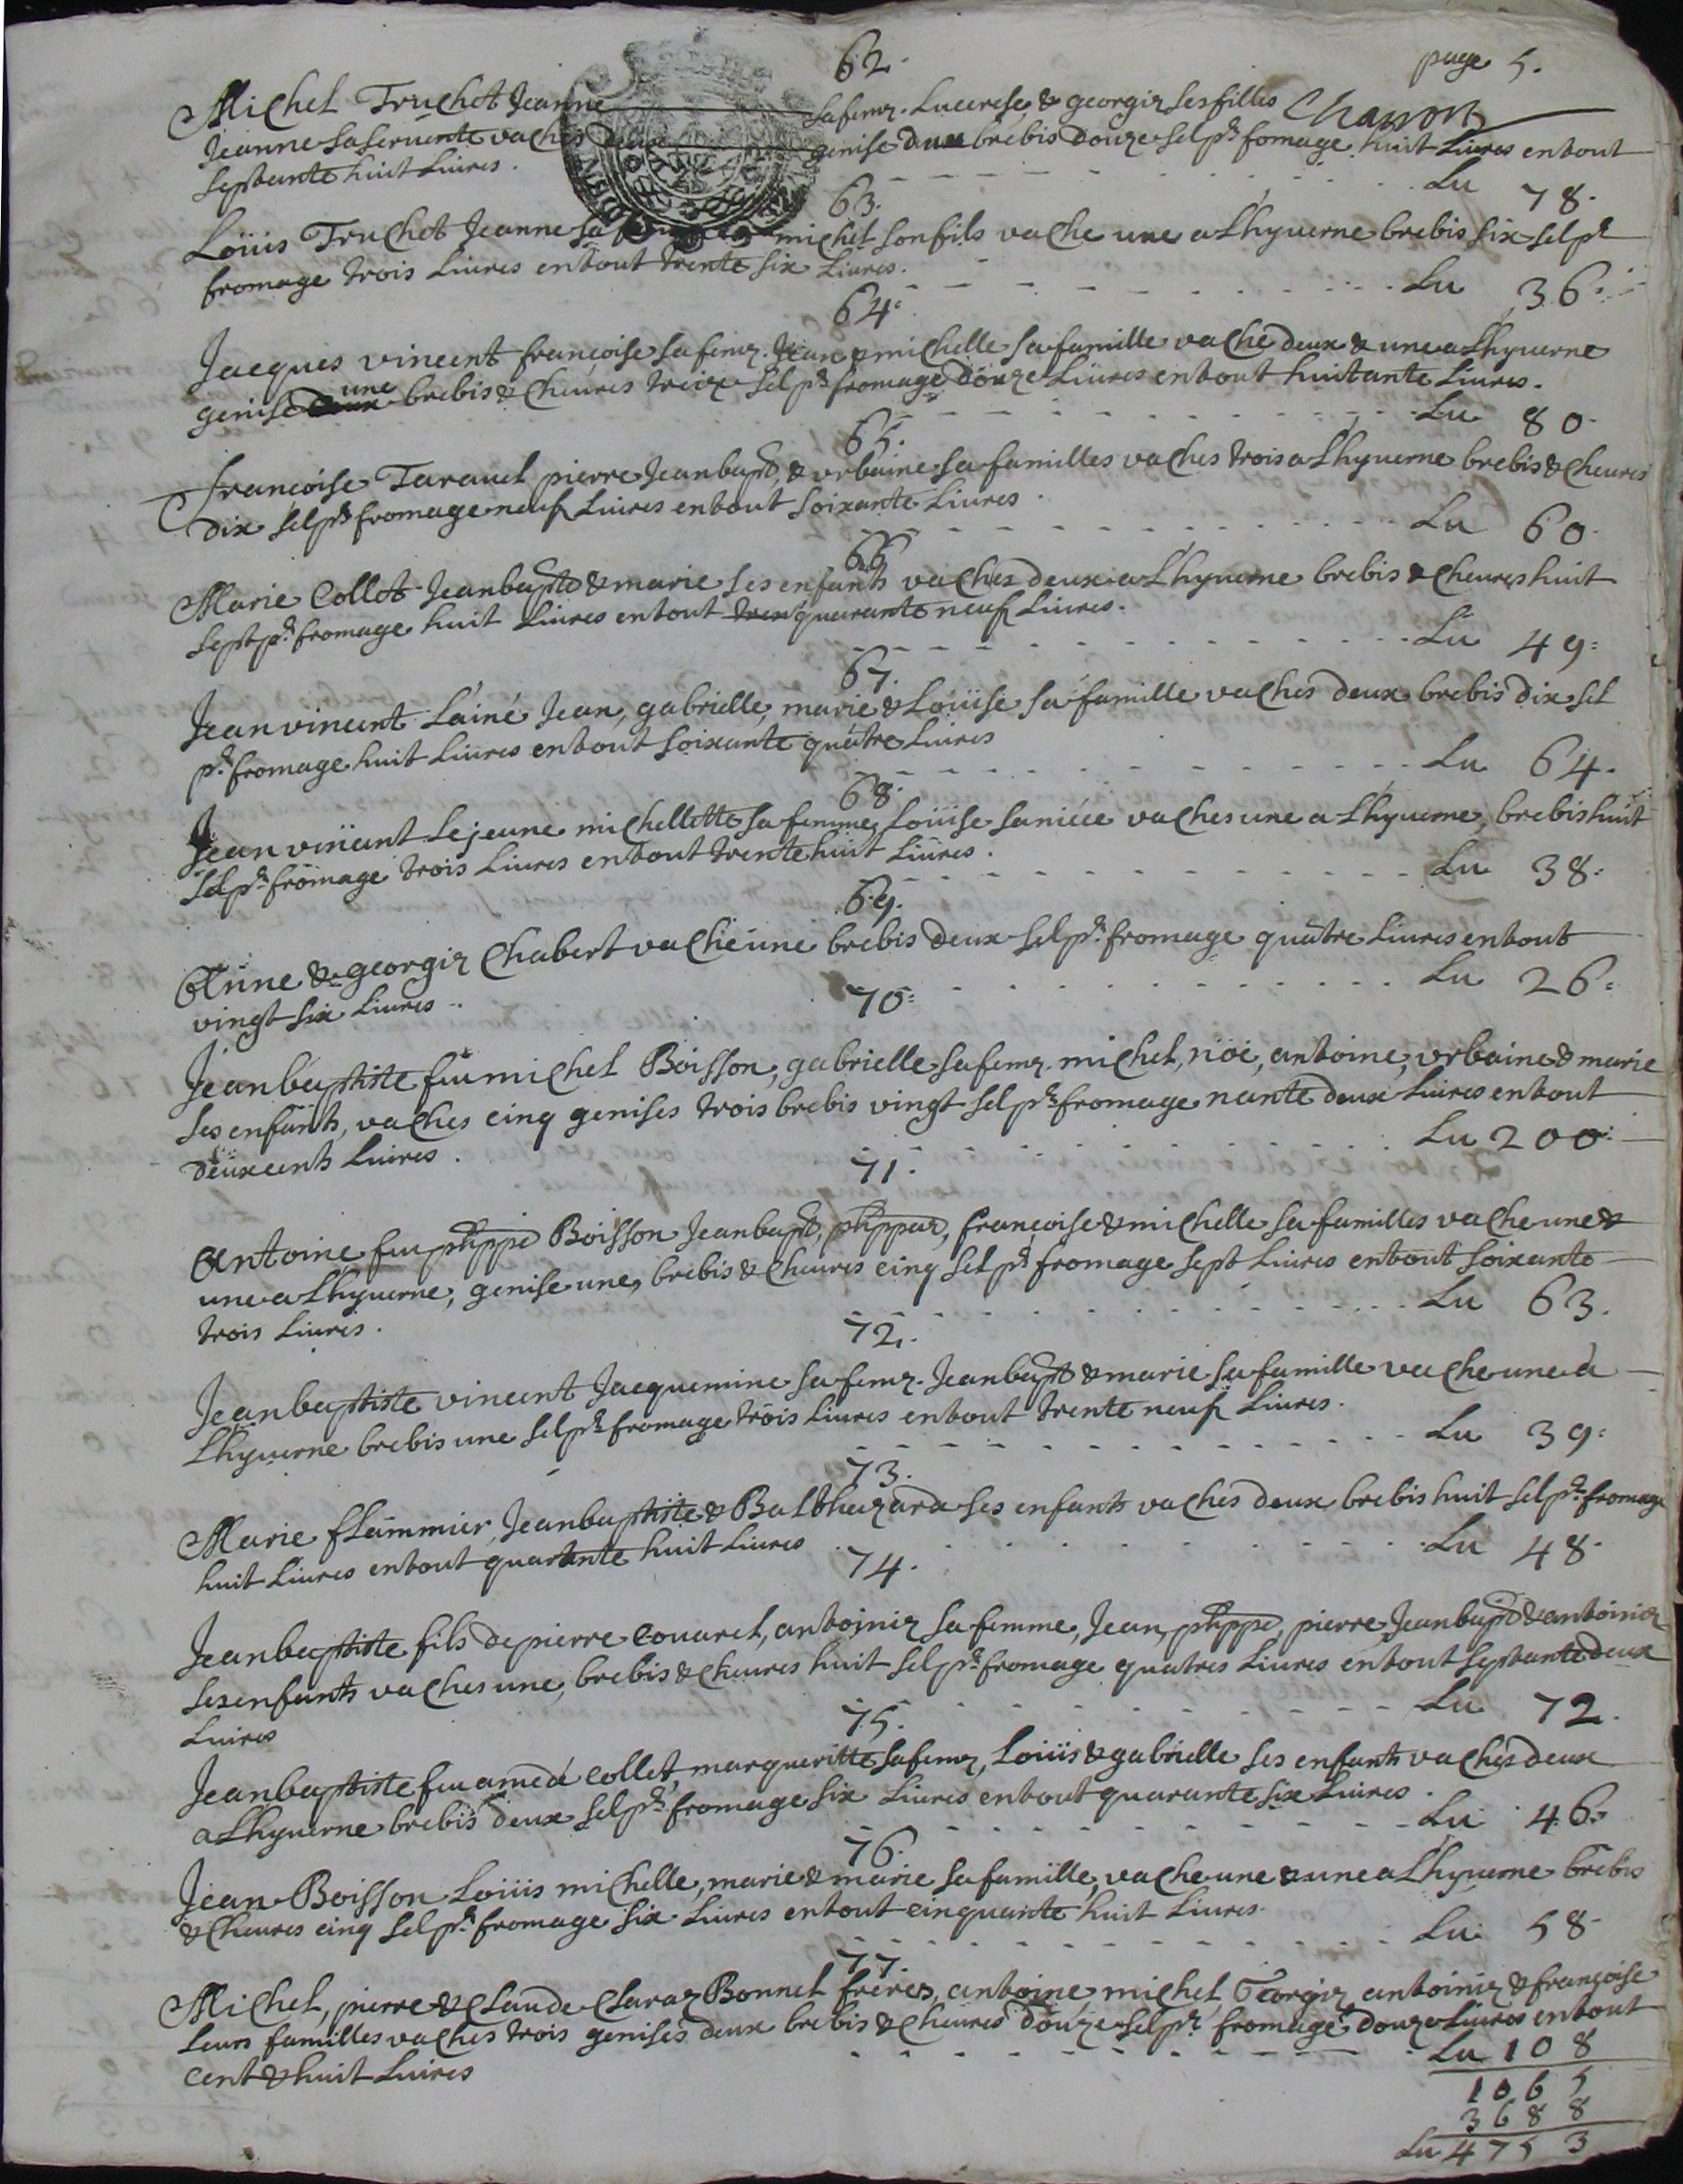 page 5.
62.
Michel Truchet Jeanne sa femᵉ. Lucresse, & georgiz ses filles Chasson
Jeanne sa servente vaches deux genise deux brebis douze sel pʳ fomage huit Livres entout
septante huit Livres. Lu 78.
63.
Loüis Truchet Jeanne sa michel son fils vache une a Lhyverne brebis six sel pʳ
fromage trois Livres entout trente six Livres. Lu 36:
64.
Jacques vincent françoise sa femᵉ. Jean & michelle sa famille vache deux & une a Lhyverne
genise une brebis & chevres treize sel pʳ fromage douze Livres entout huitante Livres.
Lu 80.
65.
françoise Taravel pierre Jeanbapᵗᵉ, & vrbaine sa familles vaches trois a Lhyverne brebis & chevres
dix sel pʳ fromage neuf Livres entout soixante Livres.
Lu 60.
66
Marie Collet Jeanbaptᵉ & marie ses enfants vaches deux a Lhyverne brebis & chevres huit
sept pʳ fromage huit Livres entout tren quarante neuf Livres.
Lu 49:
67.
Jean vincent Lainé Jean, gabrielle, marie & Loüise sa famille vaches deux brebis dix sel
pʳ fromage huit Livres entout soixante quatre Livres
Lu 64.
68.
Jean vincent Lejeune michellette sa femme, Loüise sa niéce vaches une a Lhyverne, brebis huit
sel pʳ fromage trois Livres entout trente huit Livres.
Lu 38.
69.
Anne & georgiz Chabert vache une brebis deux sel pʳ fromage quatre Livres entout
vingt six Livres. Lu 26:
70:
Jeanbaptiste feu michel Boisson, gabrielle sa femᵉ. michel, noé, antoine, vrbaine & marie
ses enfants, vaches cinq genises trois brebis vingt sel pʳ fromage nante deux Livres entout
deux cents Livres. Lu 200.
71.
Antoine feu phppe Boisson Jeanbapᵗᵉ, phppaz, françoise & michelle sa familles vache une &
une a Lhyverne, genise une, brebis & chevres cinq sel pʳ fromage sept Livres entout soixante
trois Livres. Lu 63.
72.
Jeanbaptiste vincent Jacquemine sa femᵉ. Jeanbapᵗᵉ & marie sa famille vache une à
Lhyverne brebis une sel pʳ fromage trois Livres entout trente neuf Livres.
Lu 39:
73.
Marie flammier, Jeanbaptiste & Balthazarde ses enfants vaches deux brebis huit sel pʳ fromage
huit Livres entout quarante huit Livres Lu 48.
74.
Jeanbaptiste fils de pierre Couarel, antoiniz sa femme, Jean, phppe, pierre Jeanbapᵗᵉ & antoiniz
ses enfants vaches une, brebis & chevres huit sel pʳ fromage quatres Livres entout septante deux
Livres Lu 72.
75.
Jeanbaptiste feu amedé collet, margueritte sa femᵉ, Loüis & gabrielle ses enfants vaches deux
a Lhyverne brebis deux sel pʳ fromage six Livres entout quarante six Livres.
Lu 46:
76.
Jean Boisson Loüis michelle, marie & marie sa famille, vache une & une a Lhyverne brebis
& chevres cinq sel pʳ fromage six Livres entout cinquante huit Livres.
Lu 58.
77.
Michel, pierre & Claude Claraz Bonnel freres, antoine, michel, Georgiz antoiniz & françoise
leurs familles vaches trois genises deux brebis & chevres douze sel pʳ fromage douze Livres entout
cent & huit Livres Lu 108
1065
3688
Lu 4753